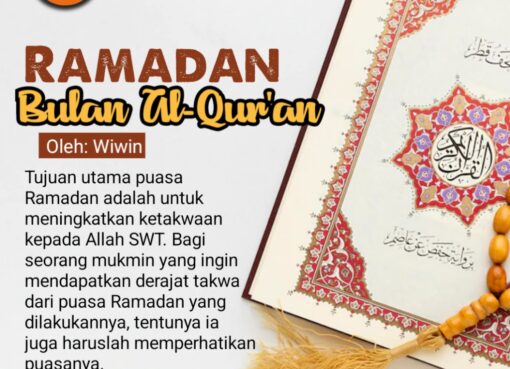 RAMADAN
Bulan Al-Qur'an
Oleh: Wiwin
Tujuan utama puasa
Ramadan adalah untuk
meningkatkan ketakwaan
kepada Allah SWT. Bagi
seorang mukmin yang ingin
mendapatkan derajat takwa
dari puasa Ramadan yang
dilakukannya, tentunya ia
juga haruslah memperhatikan
puasanya.
مصحف قطر
القرآن الكريم
برواية حفص عن عاصم